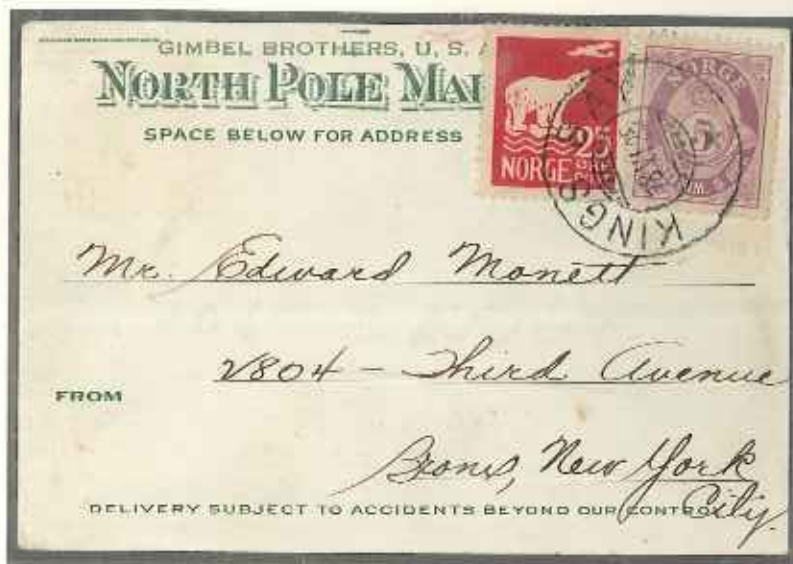 GIMBEL BROTHERS, U. S. A
NORTH POLE MAI
SPACE BELOW FOR ADDRESS
25
ØRE
NORGE
NORGE
5
KINGS BAY
Mr. Edward Monett
2804 - Third Avenue
FROM
Bronx, New York
City.
DELIVERY SUBJECT TO ACCIDENTS BEYOND OUR CONTROL